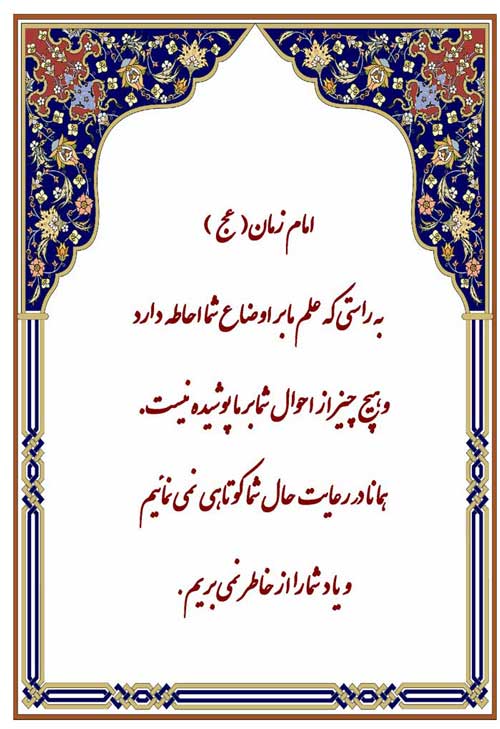 امام زمان( عج )
به راستی که علم ما بر اوضاع شما احاطه دارد
و هیچ چیز از احوال شما بر ما پوشیده نیست.
همانا در رعایت حال شما کوتاهی نمی نمائیم
و یاد شما را از خاطر نمی بریم .